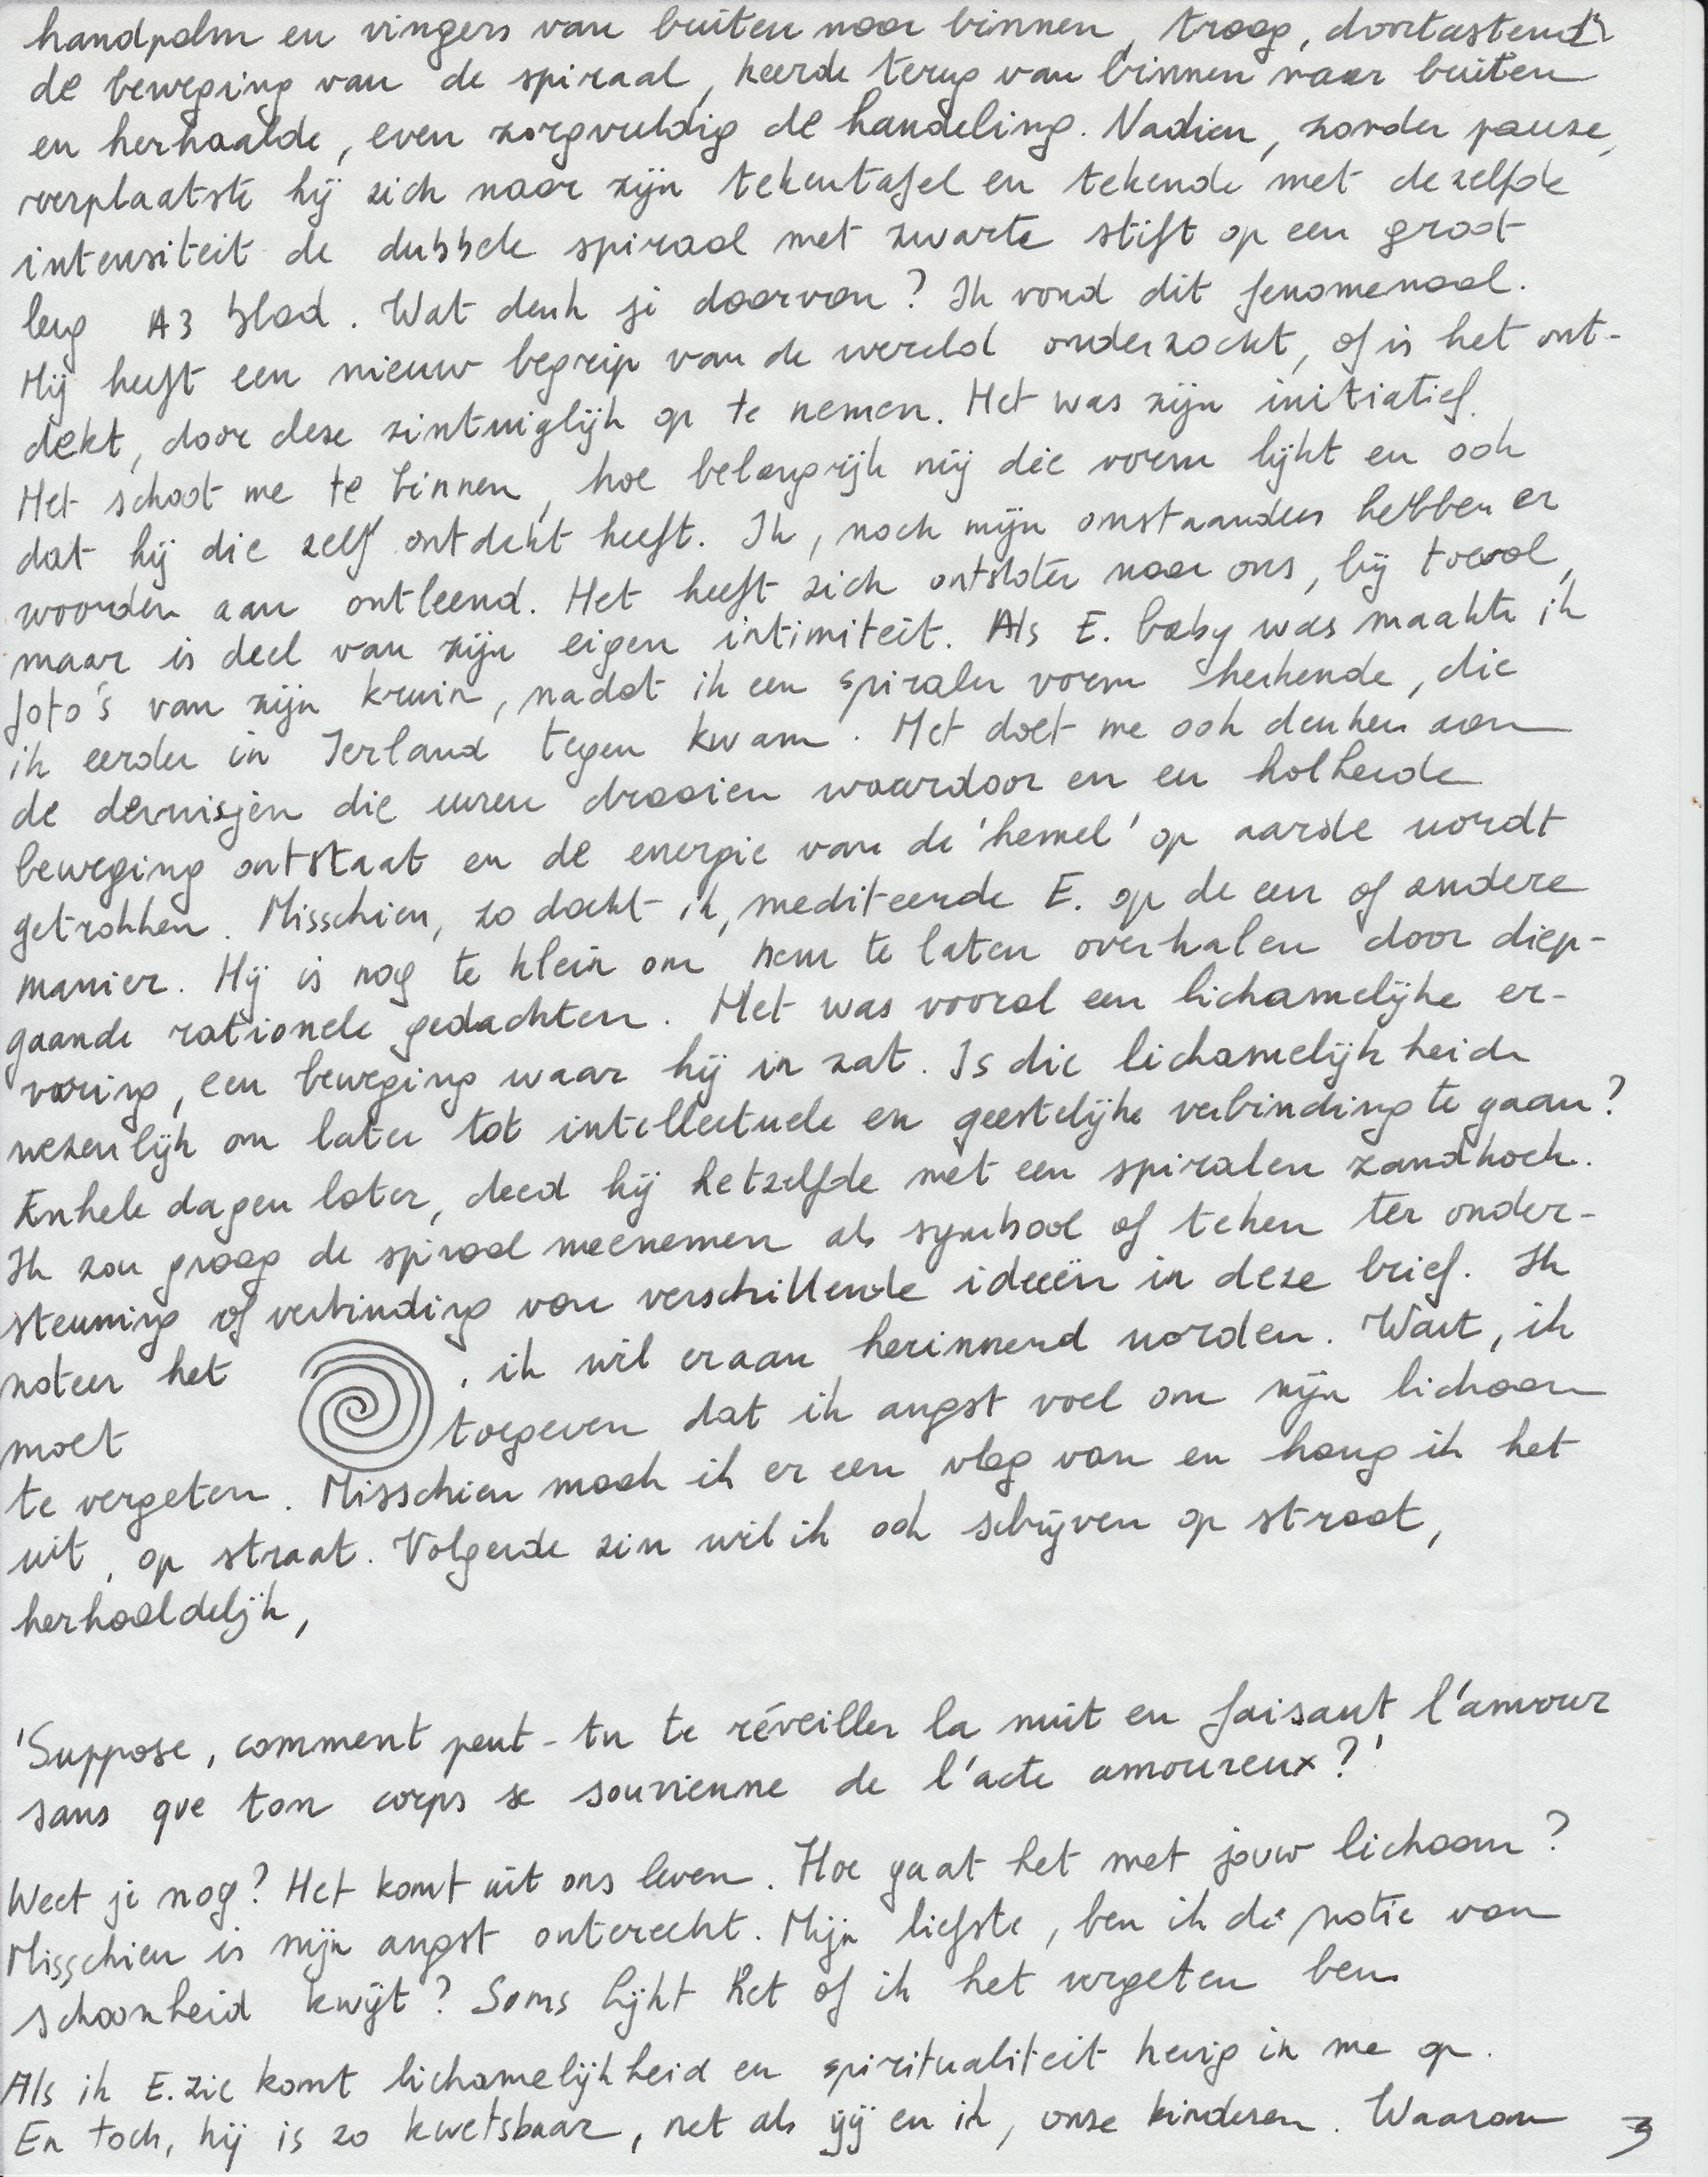 handpalm en vingers van buiten naar binnen, traag, doortastend
de beweging van de spiraal, keerde terug van binnen naar buiten
en herhaalde, even zorgvuldig de handeling. Nadien, zonder pauze,
verplaatste hij zich naar zijn tekentafel en tekende met dezelfde
intensiteit de dubbele spiraal met zwarte stift op een groot
leeg A3 blad. Wat denk je daarvan? Ik vond dit fenomenaal.
Hij heeft een nieuw begrip van de wereld onderzocht, of is het ont-
dekt, door deze zintuiglijk op te nemen. Het was zijn initiatief.
Het schoot me te binnen, hoe belangrijk mij die vorm lijkt en ook
dat hij die zelf ontdekt heeft. Ik, noch mijn omstaanders hebben er
woorden aan ontleend. Het heeft zich ontsloten naar ons, bij toeval,
maar is deel van zijn eigen intimiteit. Als E. baby was maakte ik
foto's van zijn kruin, nadat ik een spiralen vorm herkende, die
ik eerder in Ierland tegen kwam. Het doet me ook denken aan
de dervisjen die uren draaien waardoor en en kolkende
beweging ontstaat en de energie van de 'hemel' op aarde wordt
getrokken. Misschien, zo dacht ik, mediteerde E. op de een of andere
manier. Hij is nog te klein om hem te laten overhalen door diep-
gaande rationele gedachten. Het was vooral een lichamelijke er-
varing, een beweging waar hij in zat. Is die lichamelijkheid
wezenlijk om later tot intellectuele en geestelijke verbinding te gaan?
Enkele dagen later, deed hij hetzelfde met een spiralen zandkoek.
Ik zou graag de spiraal meenemen als symbool of teken ter onder-
steuning of verbinding van verschillende ideeën in deze brief. Ik
noteer het , ik wil eraan herinnerd worden. Want, ik
moet toegeven dat ik angst voel om mijn lichaam
te vergeten. Misschien maak ik er een vlag van en hang ik het
uit, op straat. Volgende zin wil ik ook schrijven op straat,
herhaaldelijk,
'Suppose, comment peut-tu te réveiller la nuit en faisant l'amour
sans que ton corps se souvienne de l'acte amoureux?'
Weet je nog? Het komt uit ons leven. Hoe gaat het met jouw lichaam?
Misschien is mijn angst onterecht. Mijn liefste, ben ik de notie van
schoonheid kwijt? Soms lijkt het of ik het vergeten ben
Als ik E. zie komt lichamelijkheid en spiritualiteit hevig in me op.
En toch, hij is zo kwetsbaar, net als jij en ik, onze kinderen. Waarom
3